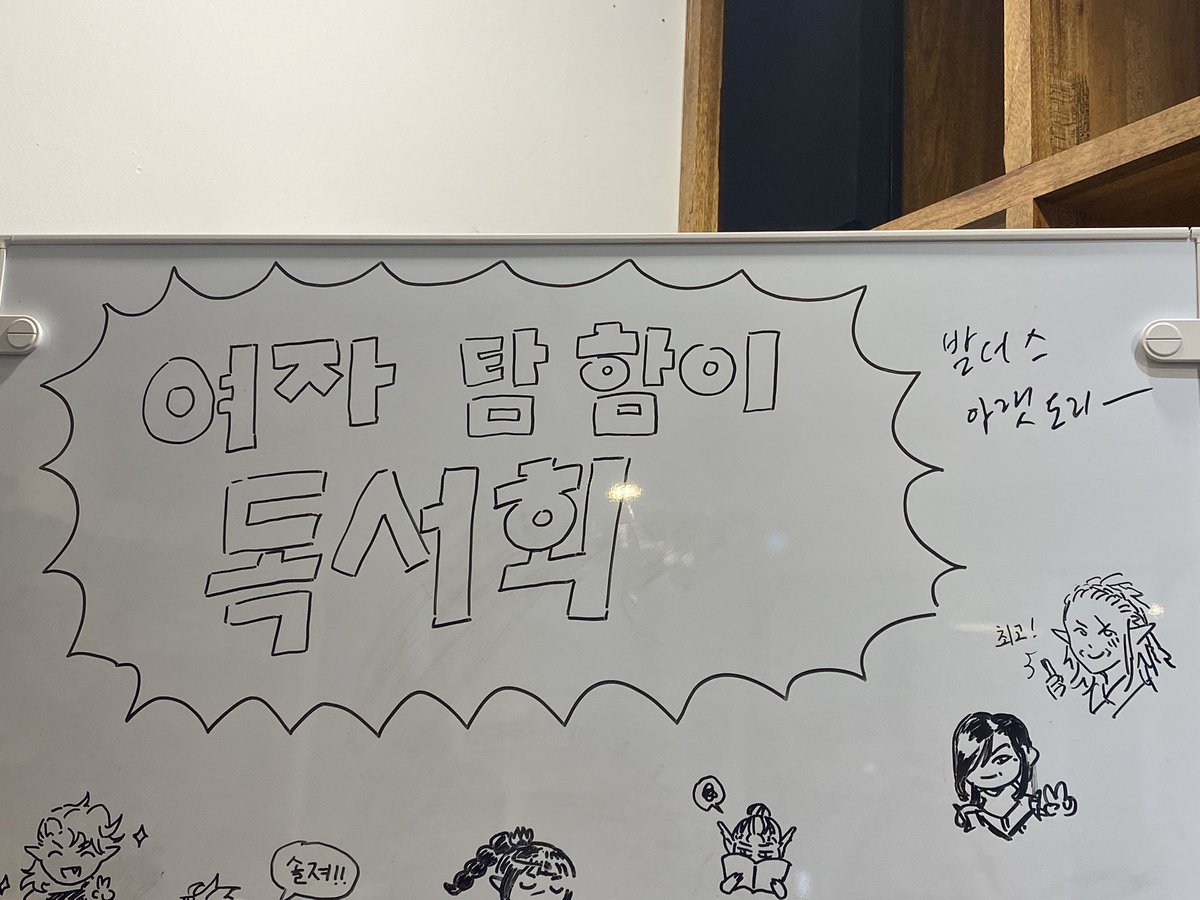 여자 탐함이
독서회
발더스
아랫도리ㅡ
최고!
솔져!!